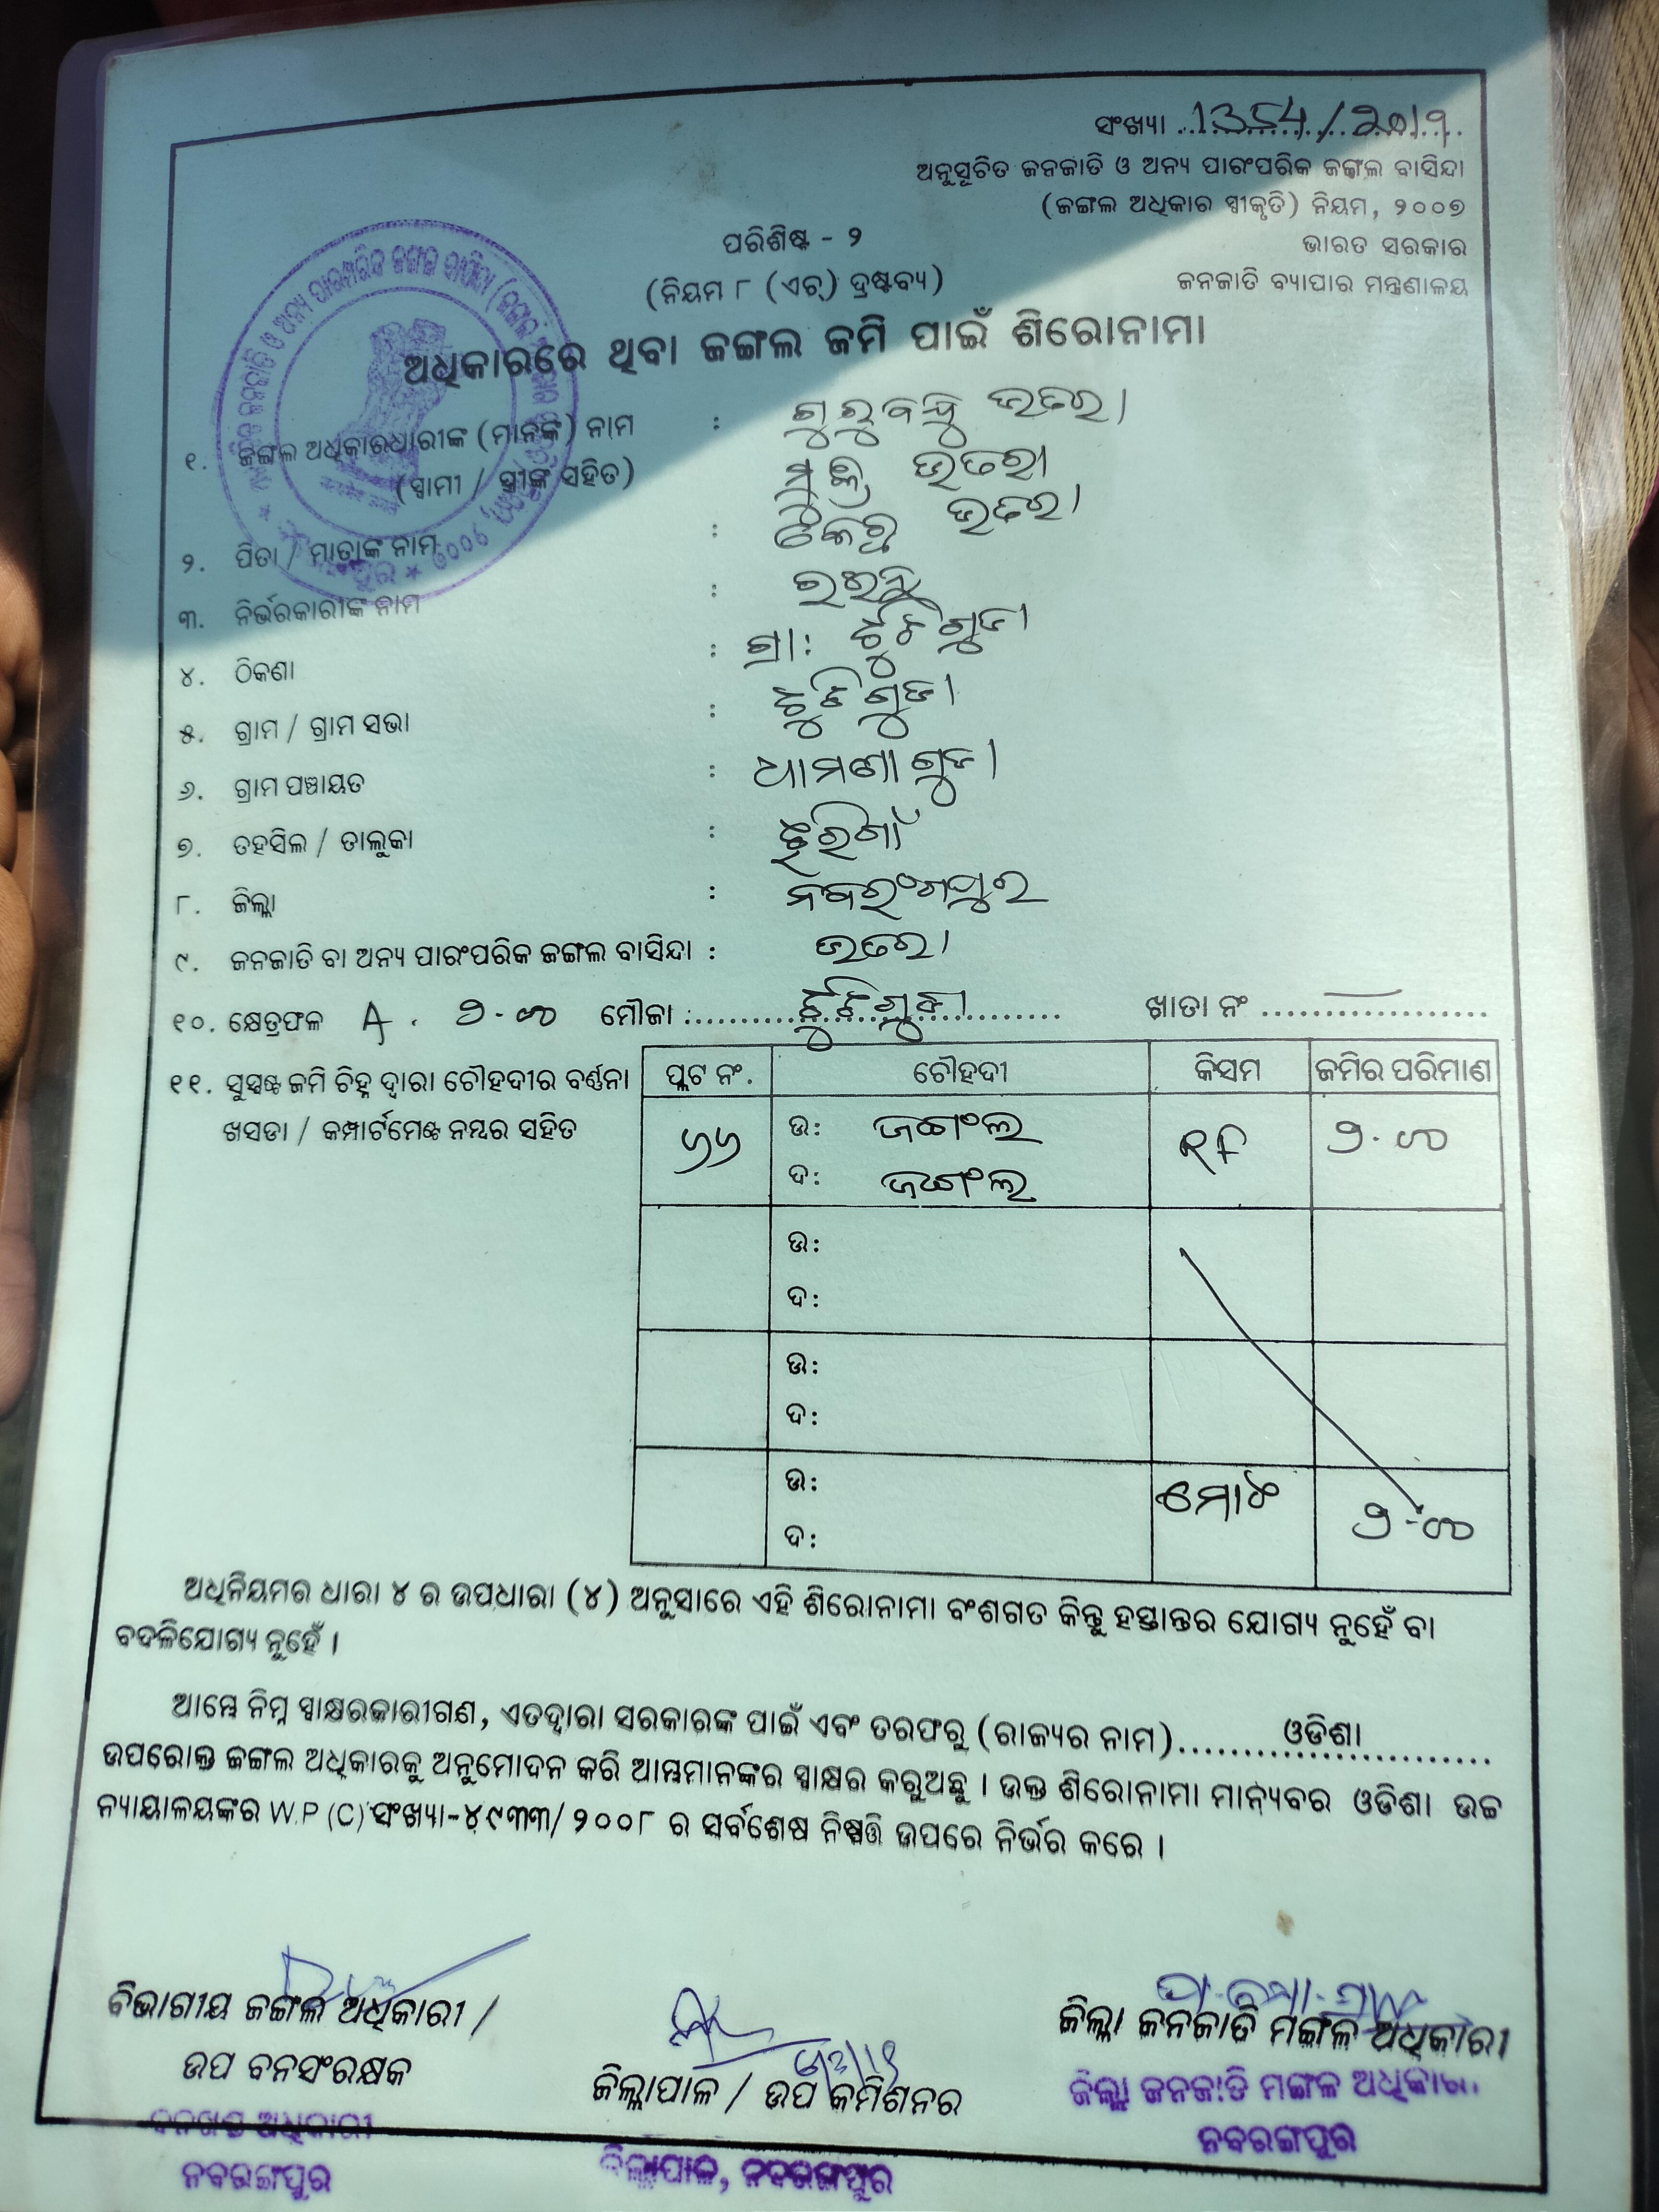 ସଂଖ୍ୟା 1354/2017
ଅନୁସୂଚିତ ଜନଜାତି ଓ ଅନ୍ୟ ପାରଂପରିକ ଜଙ୍ଗଲ ବାସିନ୍ଦା
(ଜଙ୍ଗଲ ଅଧିକାର ସ୍ୱୀକୃତି) ନିୟମ, ୨୦୦୭
ଭାରତ ସରକାର
ଜନଜାତି ବ୍ୟାପାର ମନ୍ତ୍ରଣାଳୟ
ପରିଶିଷ୍ଟ - ୨
(ନିୟମ ୮ (ଏଚ୍) ଦ୍ରଷ୍ଟବ୍ୟ)
ଅଧିକାରରେ ଥିବା ଜଙ୍ଗଲ ଜମି ପାଇଁ ଶିରୋନାମା
୧. ଜଙ୍ଗଲ ଅଧିକାରଧାରୀଙ୍କ (ମାନଙ୍କ) ନାମ : ଗୁରୁବନ୍ଧୁ ଭତରା
(ସ୍ୱାମୀ / ସ୍ତ୍ରୀଙ୍କ ସହିତ) ଭତରା
୨. ପିତା / ମାତାଙ୍କ ନାମ : ଭତରା
୩. ନିର୍ଭରକାରୀଙ୍କ ନାମ :
୪. ଠିକଣା : ଗ୍ରା:
୫. ଗ୍ରାମ / ଗ୍ରାମ ସଭା :
୬. ଗ୍ରାମ ପଞ୍ଚାୟତ : ଧାମଣାଗୁଡା
୭. ତହସିଲ / ତାଲୁକା : ଝରିଗାଁ
୮. ଜିଲ୍ଲା : ନବରଂଗପୁର
୯. ଜନଜାତି ବା ଅନ୍ୟ ପାରଂପରିକ ଜଙ୍ଗଲ ବାସିନ୍ଦା : ଭତରା
୧୦. କ୍ଷେତ୍ରଫଳ A. ୨.୦୦ ମୌଜା : ଖାତା ନଂ —
୧୧. ସୁସ୍ପଷ୍ଟ ଜମି ଚିହ୍ନ ଦ୍ୱାରା ଚୌହଦୀର ବର୍ଣ୍ଣନା
ଖସଡା / କମ୍ପାର୍ଟମେଣ୍ଟ ନମ୍ବର ସହିତ
ପ୍ଲଟ ନଂ. ଚୌହଦୀ କିସମ ଜମିର ପରିମାଣ
୬୬ ଉ: ଜଙ୍ଗଲ ୨.୦୦
ଦ: ଜଙ୍ଗଲ
ଉ:
ଦ:
ଉ:
ଦ:
ଉ: ମୋଟ ୨.୦୦
ଦ:
ଅଧିନିୟମର ଧାରା ୪ ର ଉପଧାରା (୪) ଅନୁସାରେ ଏହି ଶିରୋନାମା ବଂଶଗତ କିନ୍ତୁ ହସ୍ତାନ୍ତର ଯୋଗ୍ୟ ନୁହେଁ ବା
ବଦଳିଯୋଗ୍ୟ ନୁହେଁ ।
ଆମ୍ଭେ ନିମ୍ନ ସ୍ୱାକ୍ଷରକାରୀଗଣ, ଏତଦ୍ୱାରା ସରକାରଙ୍କ ପାଇଁ ଏବଂ ତରଫରୁ (ରାଜ୍ୟର ନାମ) ଓଡିଶା
ଉପରୋକ୍ତ ଜଙ୍ଗଲ ଅଧିକାରକୁ ଅନୁମୋଦନ କରି ଆମ୍ଭମାନଙ୍କର ସ୍ୱାକ୍ଷର କରୁଅଛୁ । ଉକ୍ତ ଶିରୋନାମା ମାନ୍ୟବର ଓଡିଶା ଉଚ୍ଚ
ନ୍ୟାୟାଳୟଙ୍କର W.P (C) ସଂଖ୍ୟା-୪୯୩୩/୨୦୦୮ ର ସର୍ବଶେଷ ନିଷ୍ପତ୍ତି ଉପରେ ନିର୍ଭର କରେ ।
ବିଭାଗୀୟ ଜଙ୍ଗଲ ଅଧିକାରୀ /
ଉପ ବନସଂରକ୍ଷକ
ବନଖଣ୍ଡ ଅଧିକାରୀ
ନବରଙ୍ଗପୁର
ଜିଲ୍ଲାପାଳ / ଉପ କମିଶନର
ଜିଲ୍ଲାପାଳ, ନବରଙ୍ଗପୁର
ଜିଲ୍ଲା ଜନଜାତି ମଙ୍ଗଳ ଅଧିକାରୀ
ଜିଲ୍ଲା ଜନଜାତି ମଙ୍ଗଳ ଅଧିକାରୀ
ନବରଙ୍ଗପୁର